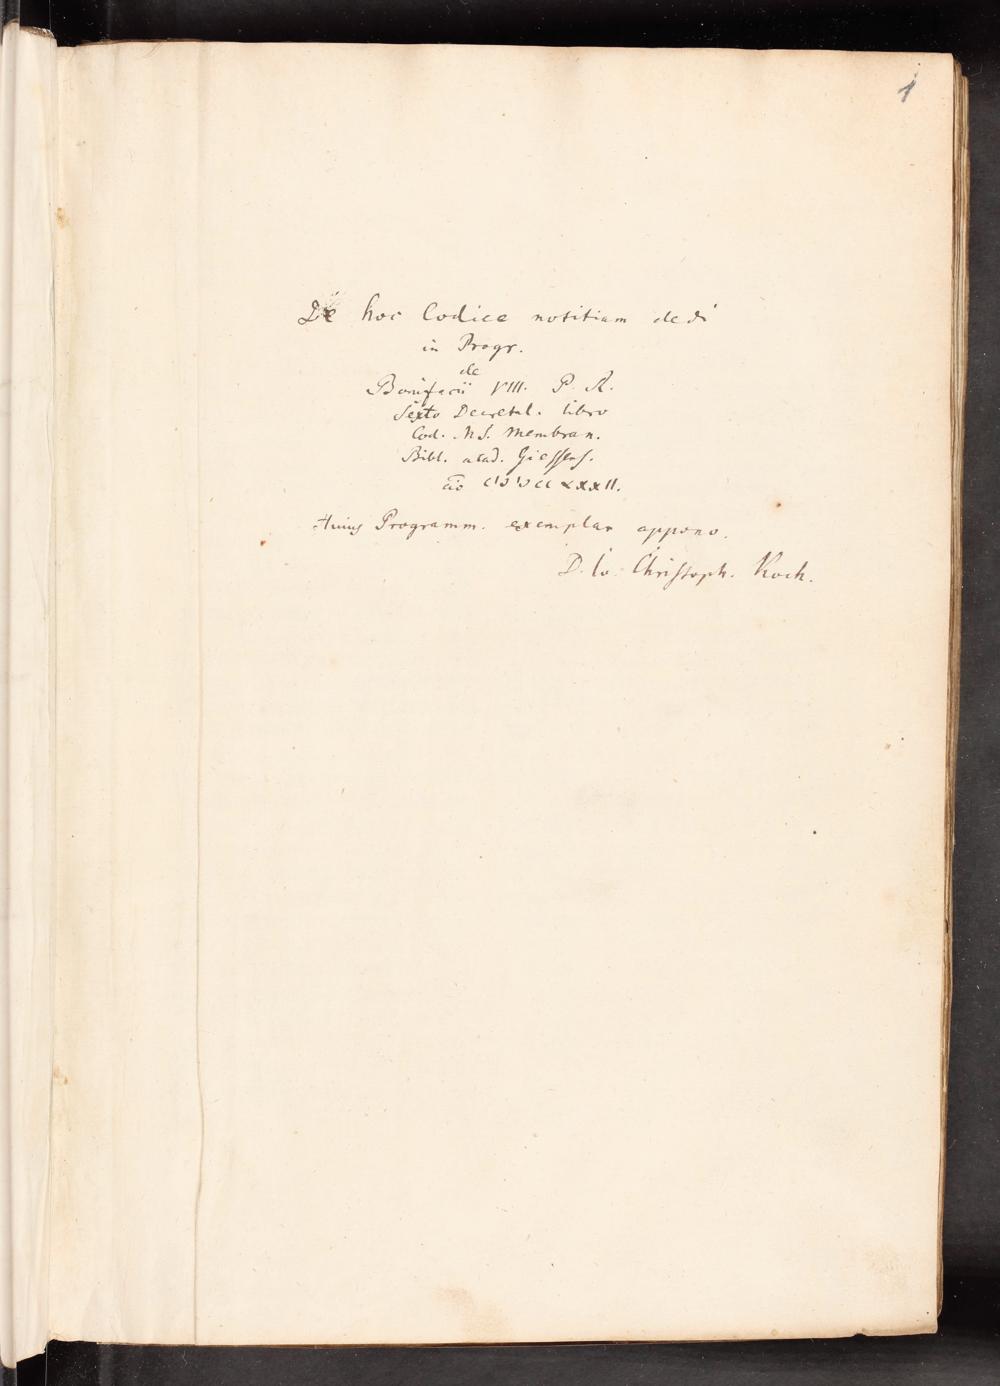 1
De hoc Codice notitiam dedi
in Progr.
de
Bonifacii VIII. P. R.
Sexto Decretal. libro
Cod. MS. Membran.
Bibl. acad. Giessens.
CIƆIƆCCLXXXII.
Huius Programm. exemplar appono.
D. Io. Christoph. Koch.